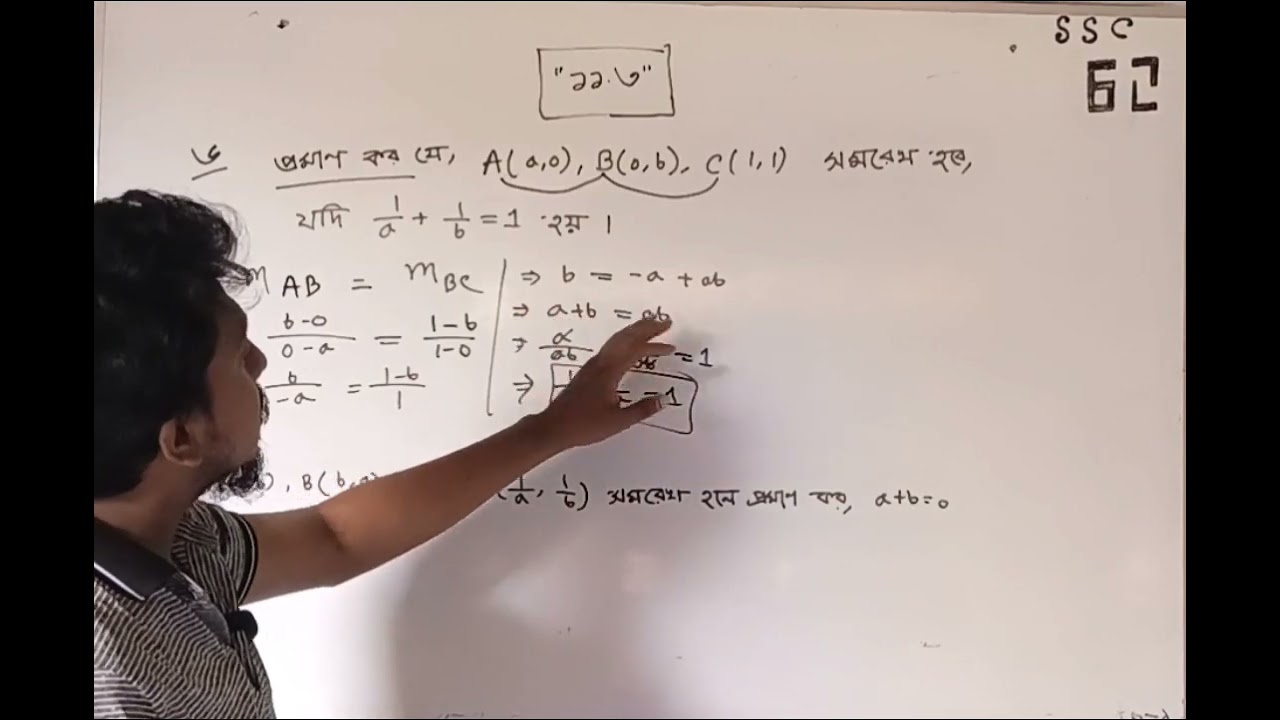 SSC
62
"১১.৩"
৬ প্রমাণ কর যে, A(a,0), B(0,b), C(1,1) সমরেখ হবে,
যদি 1/a + 1/b = 1 হয় ।
m AB = m BC
b-0/0-a = 1-b/1-0
b/-a = 1-b/1
⇒ b = -a + ab
⇒ a+b = ab
⇒ a/ab = 1
⇒ 1 = 1
, B(b, (1/a, 1/b) সমরেখ হলে প্রমাণ কর, a+b=0